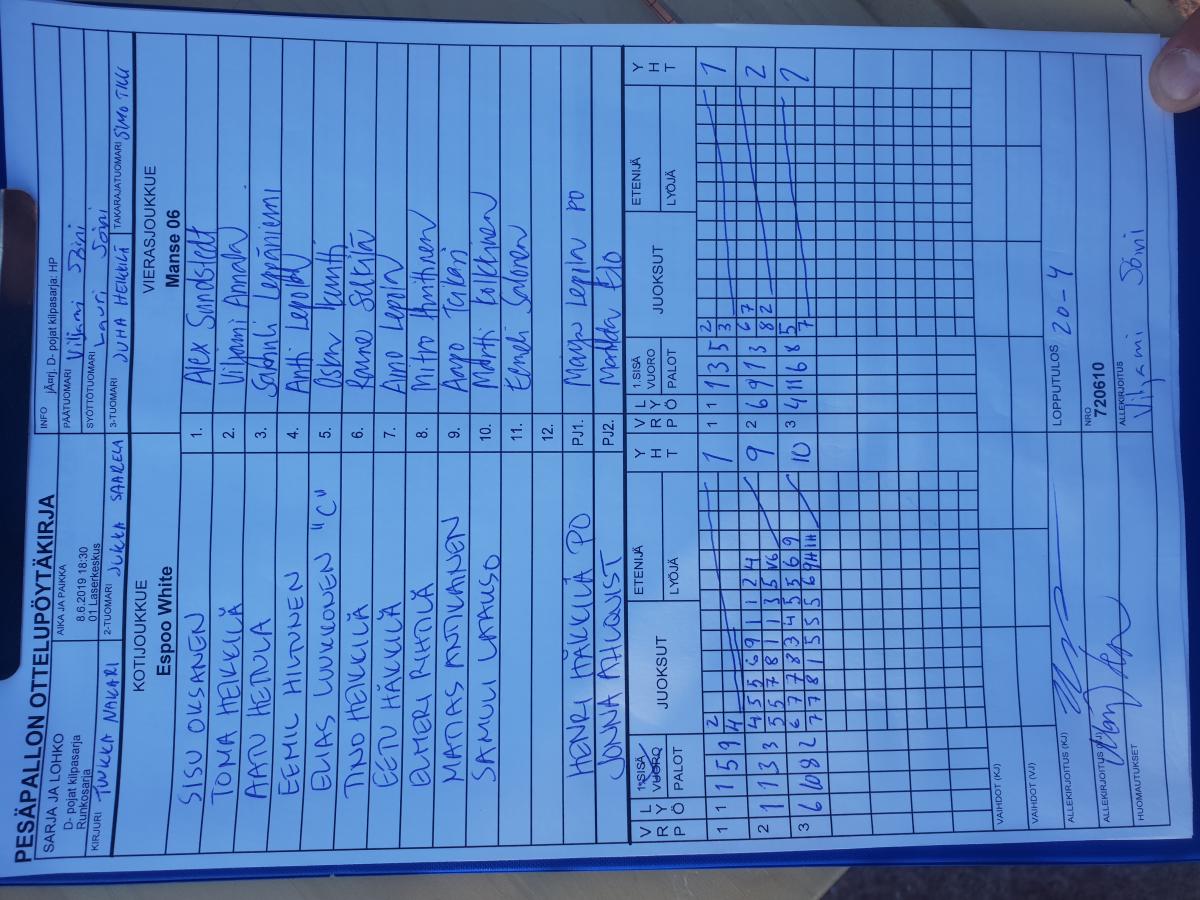 PESÄPALLON OTTELUPÖYTÄKIRJA
SARJA JA LOHKO
D- pojat kilpasarja
Runkosarja
AIKA JA PAIKKA
8.6.2019 18:30
01 Laserkeskus
INFO jÄ¤rj. D- pojat kilpasarja: HP
PÄÄTUOMARI Viljami Söini
SYÖTTÖTUOMARI Lauri Söini
KIRJURI TUUKKA NAKARI
2-TUOMARI JUKKA SAARELA
3-TUOMARI JUHA HEIKKILÄ
TAKARAJATUOMARI SIMO TIKU
KOTIJOUKKUE
Espoo White
VIERASJOUKKUE
Manse 06
SISU OKSANEN 1. Alex Sundstedt
TOMA HEIKKILÄ 2. Viljami Annala
AATU HETULA 3. Leppäniemi
EEMIL HILTUNEN 4. Antti Lepola
ELIAS LUUKKONEN "C" 5.
TINO HEIKKILÄ 6.
EETU HÄKKILÄ 7. Lepola
ELMERI RIHTILÄ 8.
MATIAS ANTIKAINEN 9.
SAMULI LATAUSO 10. Martti Kolkkinen
11. Eemeli Salonen
12.
HENRI HÄKKILÄ PO PJ1. Lepola PO
JONNA AHLQVIST PJ2.
V R P
L Y Ö
1.SISÄ VUORO
PALOT
JUOKSUT
ETENIJÄ
LYÖJÄ
Y H T
V R P
L Y Ö
1.SISÄ VUORO
PALOT
JUOKSUT
ETENIJÄ
LYÖJÄ
Y H T
1 1 1 5 9 2 1 1 1 1 3 5 2 1
4 3
2 1 1 1 3 3 4 5 5 6 9 1 1 2 4 9 2 6 9 1 3 6 7 2
5 5 7 8 1 1 3 5 V6 8 2
3 6 10 8 2 6 7 7 8 3 4 5 5 6 9 10 3 4 11 6 8 5 1
7 7 8 1 5 5 5 6 9H 1H 7
VAIHDOT (KJ)
VAIHDOT (VJ)
ALLEKIRJOITUS (KJ)
LOPPUTULOS 20-4
ALLEKIRJOITUS (VJ)
NRO
720610
HUOMAUTUKSET
ALLEKIRJOITUS
Viljami Söini